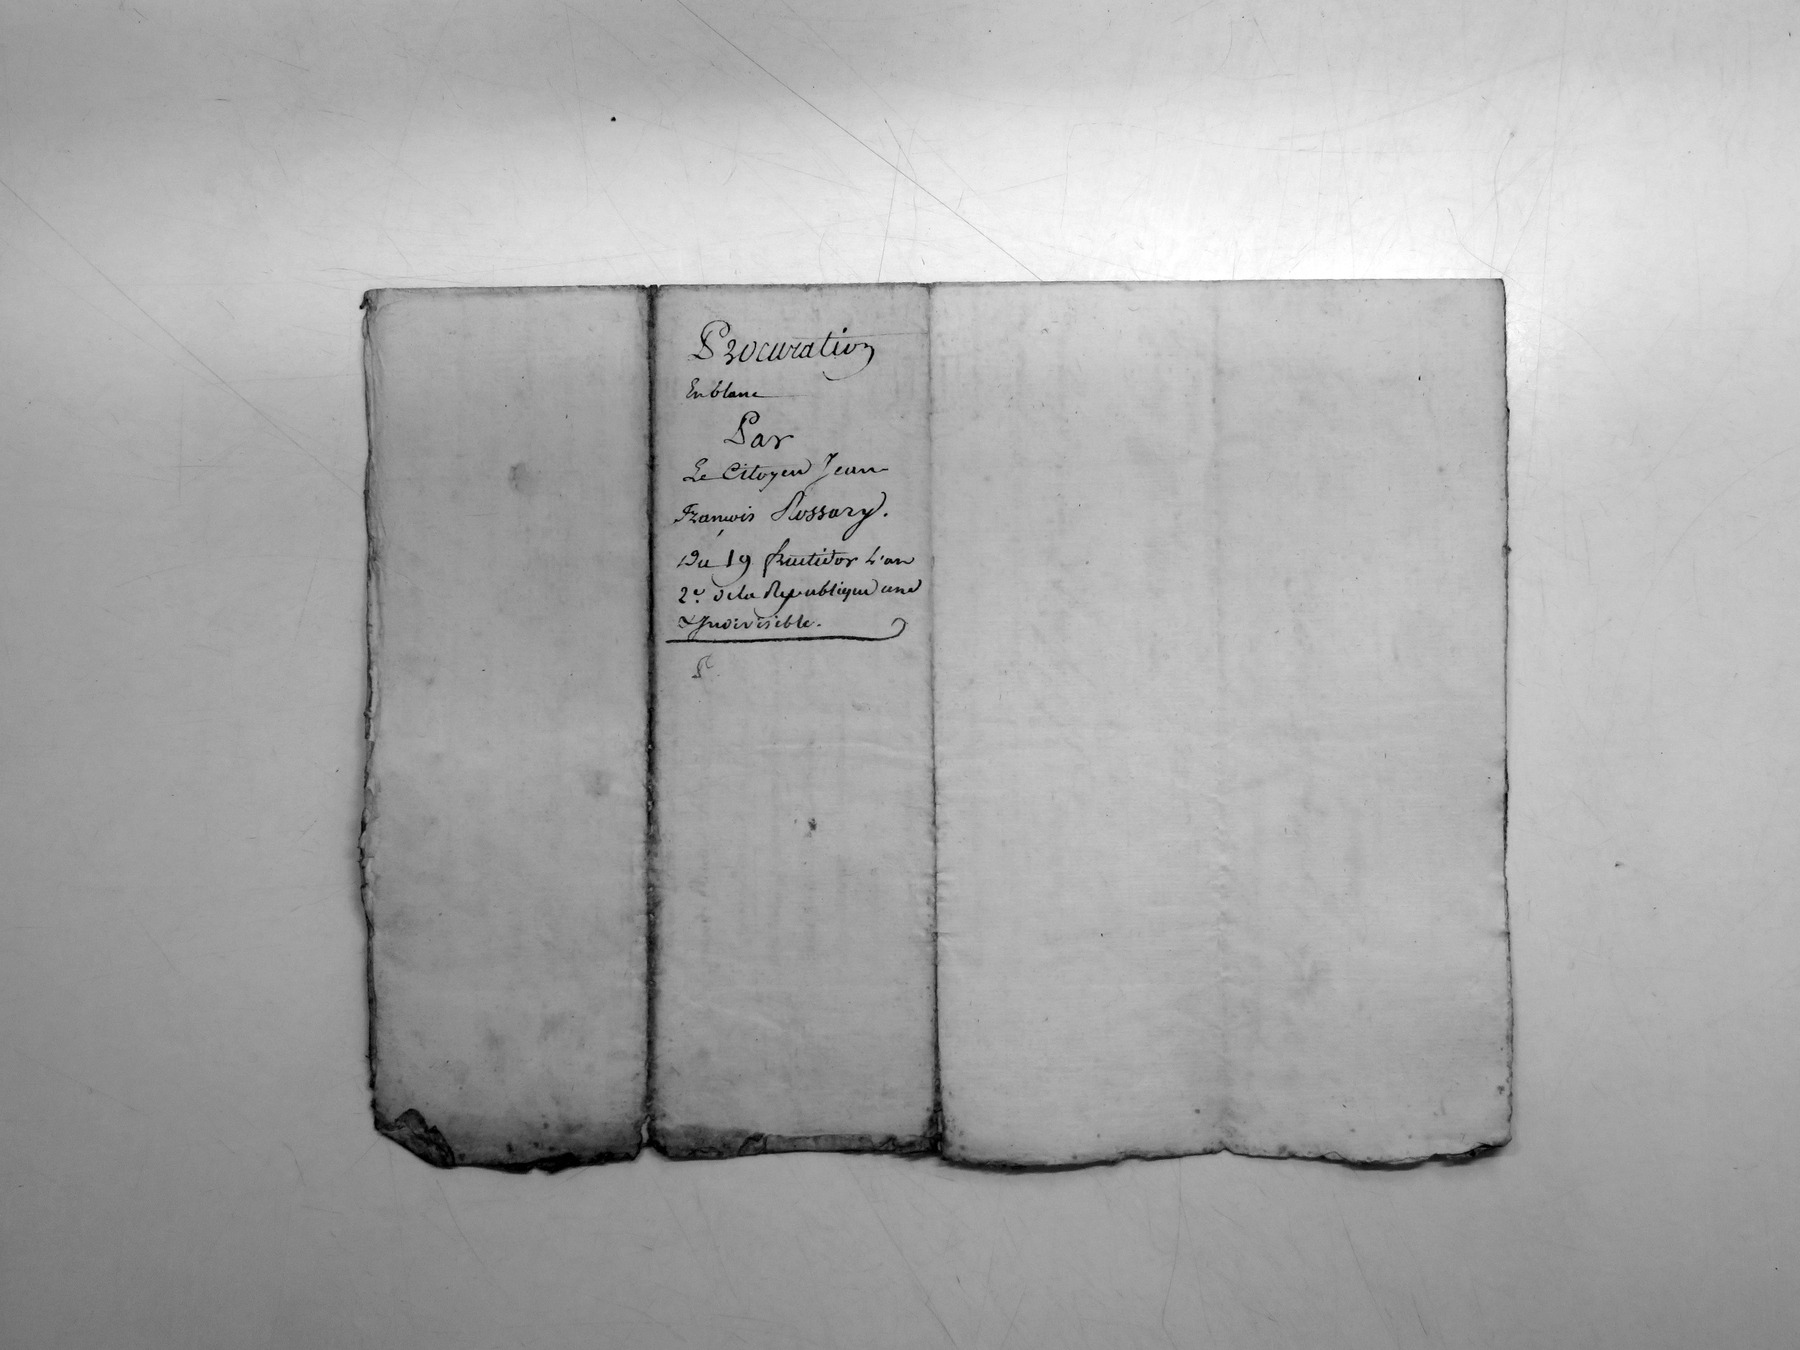 Procuration
En blanc
Par
Le Citoyen Jean
François Rossary.
Du 19 fructidor L'an
2e. de la Republique une
& Indivisible.